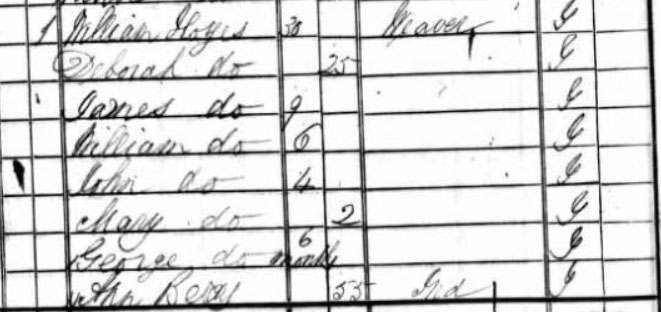 1 William Hoyes 30 Weaver J
Deborah do 25 J
James do 9 J
William do 6 J
John do 4 J
Mary do 2 J
George do 6 months J
Ann 55 Ind J